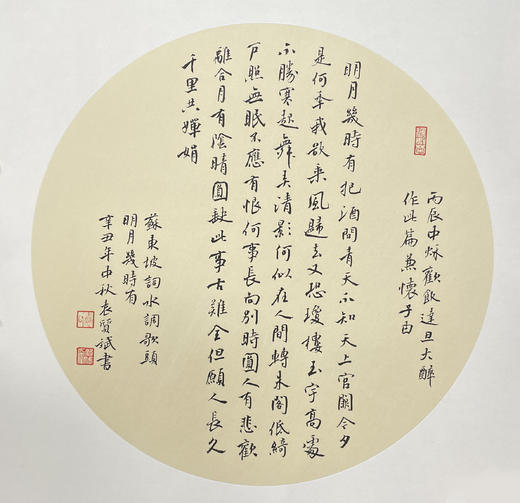 丙辰中秋歡飲達旦大醉
作此篇兼懷子由
明月幾時有把酒問青天不知天上宮闕今夕
是何年我欲乘風歸去又恐瓊樓玉宇高處
不勝寒起舞弄清影何似在人間轉朱閣低綺
戶照無眠不應有恨何事長向別時圓人有悲歡
離合月有陰晴圓缺此事古難全但願人長久
千里共嬋娟
蘇東坡詞水調歌頭
明月幾時有
辛丑年中秋袁賢斌書